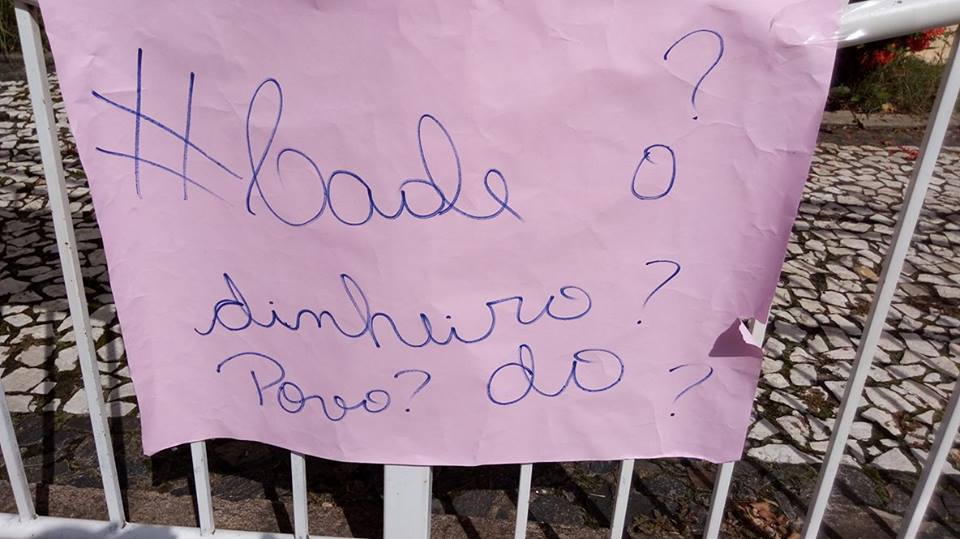 #Cade o?
dinheiro?
Povo? do?